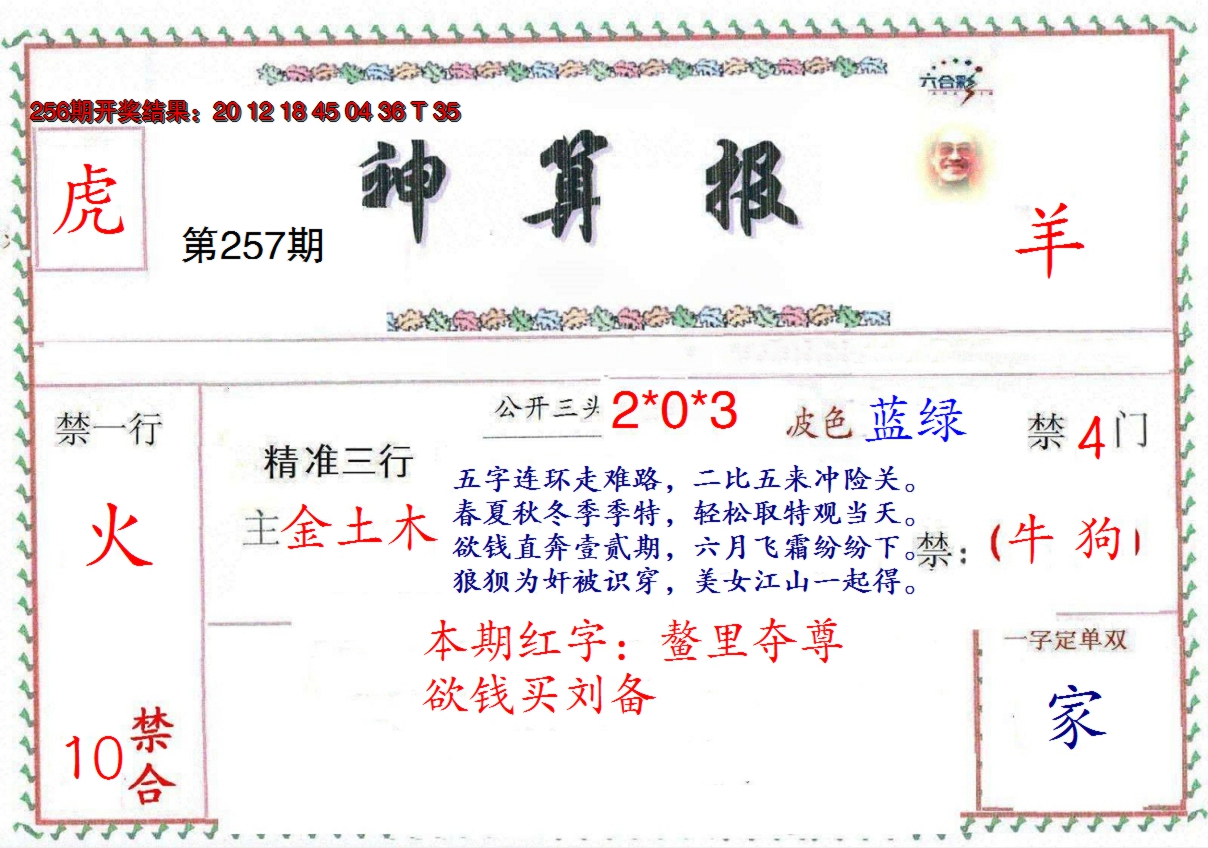 六合彩
256期开奖结果：20 12 18 45 04 36 T 35
神算报
虎
第257期
羊
禁一行
火
10禁合
公开三头 2*0*3
波色 蓝绿
禁4门
精准三行
主金土木
五字连环走难路，二比五来冲险关。
春夏秋冬季季特，轻松取特观当天。
欲钱直奔壹贰期，六月飞霜纷纷下。
狼狈为奸被识穿，美女江山一起得。
禁：(牛 狗)
本期红字：鳌里夺尊
欲钱买刘备
一字定单双
家